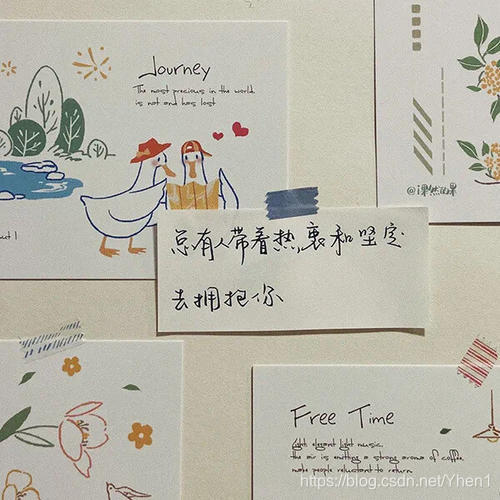 Journey
The most precious in the world
is not and has lost
@i果然因果
总有人带着热衷和坚定
去拥抱你
Free Time
Light elegant light music
the air is emitting a strong aroma of coffee
make people reluctant to return
https://blog.csdn.net/Yhen1